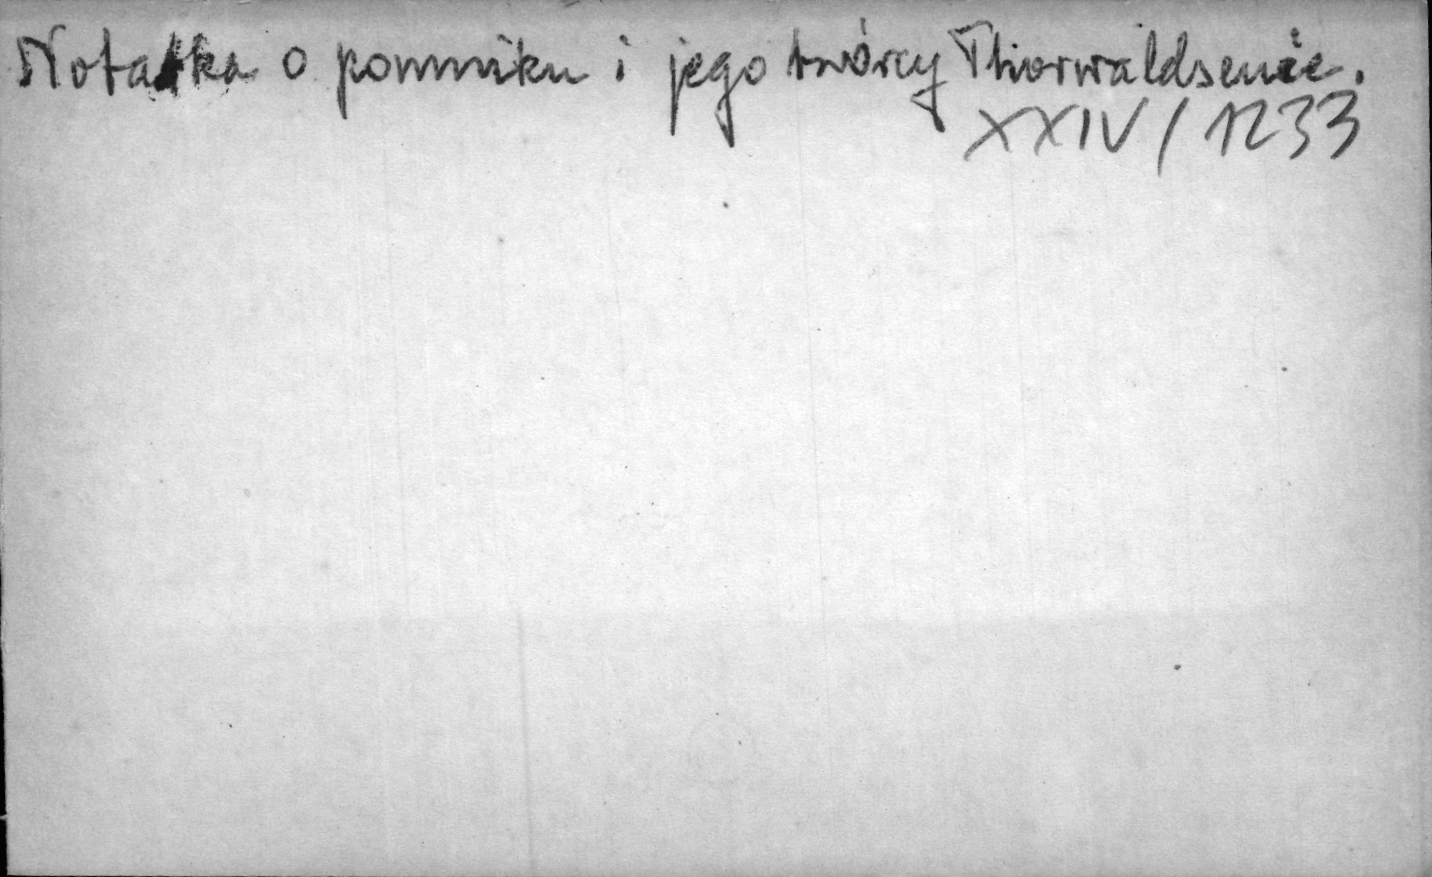 Notatka o pomniku i jego twórcy Thorwaldsenie.
XXIV/1233